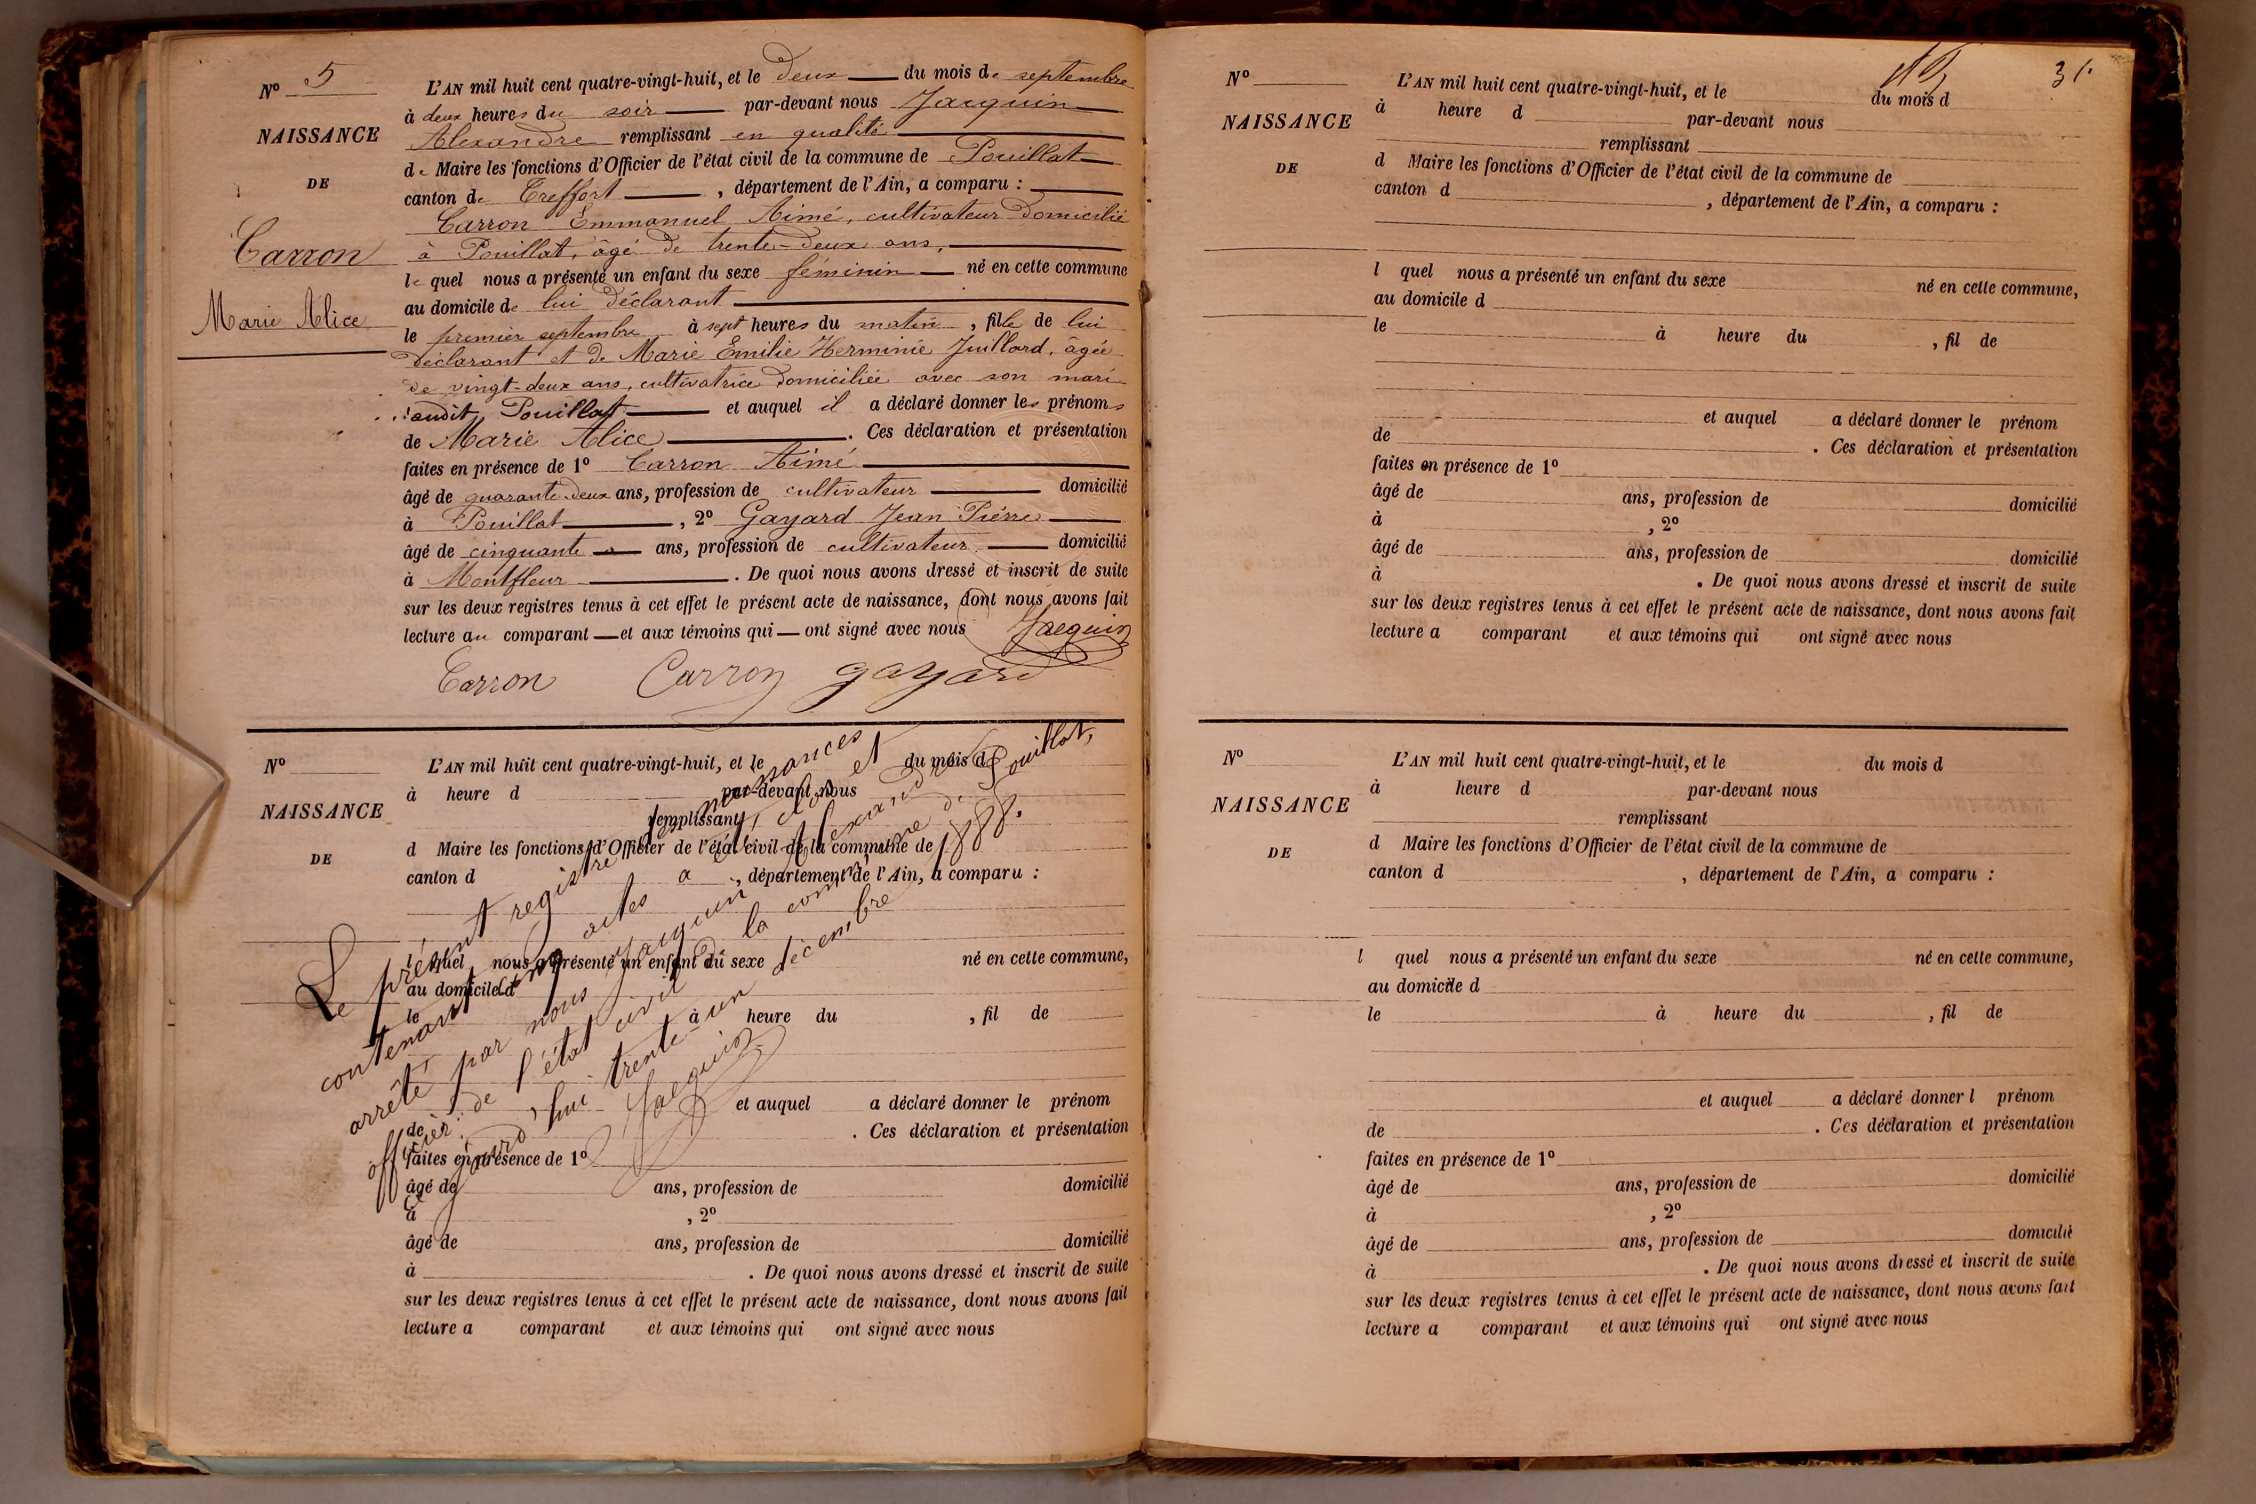 N° 5
NAISSANCE
DE
Carron
Marie Alice
L'AN mil huit cent quatre-vingt-huit, et le deux du mois de septembre
à deux heures du soir par-devant nous Jacquin
Alexandre remplissant en qualité
de Maire les fonctions d'Officier de l'état civil de la commune de Pouillat
canton de Treffort, département de l'Ain, a comparu :
Carron Emmanuel Aimé, cultivateur domicilié
à Pouillat, âgé de trente-deux ans,
lequel nous a présenté un enfant du sexe féminin né en cette commune
au domicile de lui déclarant
le premier septembre à sept heures du matin, fille de lui
déclarant et de Marie Emilie Herminie Juillard, âgée
de vingt-deux ans, cultivatrice domiciliée avec son mari
audit Pouillat et auquel il a déclaré donner les prénoms
de Marie Alice. Ces déclaration et présentation
faites en présence de 1° Carron Aimé
âgé de quarante-deux ans, profession de cultivateur domicilié
à Pouillat, 2° Gayard Jean Pierre
âgé de cinquante ans, profession de cultivateur domicilié
à Montfleur. De quoi nous avons dressé et inscrit de suite
sur les deux registres tenus à cet effet le présent acte de naissance, dont nous avons fait
lecture au comparant et aux témoins qui ont signé avec nous Jacquin
Carron Carron gayard
N°
NAISSANCE
DE
L'AN mil huit cent quatre-vingt-huit, et le du mois d
à heure d par-devant nous
remplissant
d Maire les fonctions d'Officier de l'état civil de la commune de
canton d , département de l'Ain, a comparu :
l quel nous a présenté un enfant du sexe né en cette commune,
au domicile d
le à heure du , fil de
et auquel a déclaré donner le prénom
de . Ces déclaration et présentation
faites en présence de 1°
âgé de ans, profession de domicilié
à , 2°
âgé de ans, profession de domicilié
à . De quoi nous avons dressé et inscrit de suite
sur les deux registres tenus à cet effet le présent acte de naissance, dont nous avons fait
lecture a comparant et aux témoins qui ont signé avec nous
Le présent registre des naissances
contenant cinq actes a été clos et
arrêté par nous Jacquin Alexandre
officier de l'état civil de la commune de Pouillat,
aujourd'hui trente-un décembre 1888.
Jacquin
31.
N°
NAISSANCE
DE
L'AN mil huit cent quatre-vingt-huit, et le du mois d
à heure d par-devant nous
remplissant
d Maire les fonctions d'Officier de l'état civil de la commune de
canton d , département de l'Ain, a comparu :
l quel nous a présenté un enfant du sexe né en cette commune,
au domicile d
le à heure du , fil de
et auquel a déclaré donner le prénom
de . Ces déclaration et présentation
faites en présence de 1°
âgé de ans, profession de domicilié
à , 2°
âgé de ans, profession de domicilié
à . De quoi nous avons dressé et inscrit de suite
sur les deux registres tenus à cet effet le présent acte de naissance, dont nous avons fait
lecture a comparant et aux témoins qui ont signé avec nous
N°
NAISSANCE
DE
L'AN mil huit cent quatre-vingt-huit, et le du mois d
à heure d par-devant nous
remplissant
d Maire les fonctions d'Officier de l'état civil de la commune de
canton d , département de l'Ain, a comparu :
l quel nous a présenté un enfant du sexe né en cette commune,
au domicile d
le à heure du , fil de
et auquel a déclaré donner l prénom
de . Ces déclaration et présentation
faites en présence de 1°
âgé de ans, profession de domicilié
à , 2°
âgé de ans, profession de domicilié
à . De quoi nous avons dressé et inscrit de suite
sur les deux registres tenus à cet effet le présent acte de naissance, dont nous avons fait
lecture a comparant et aux témoins qui ont signé avec nous